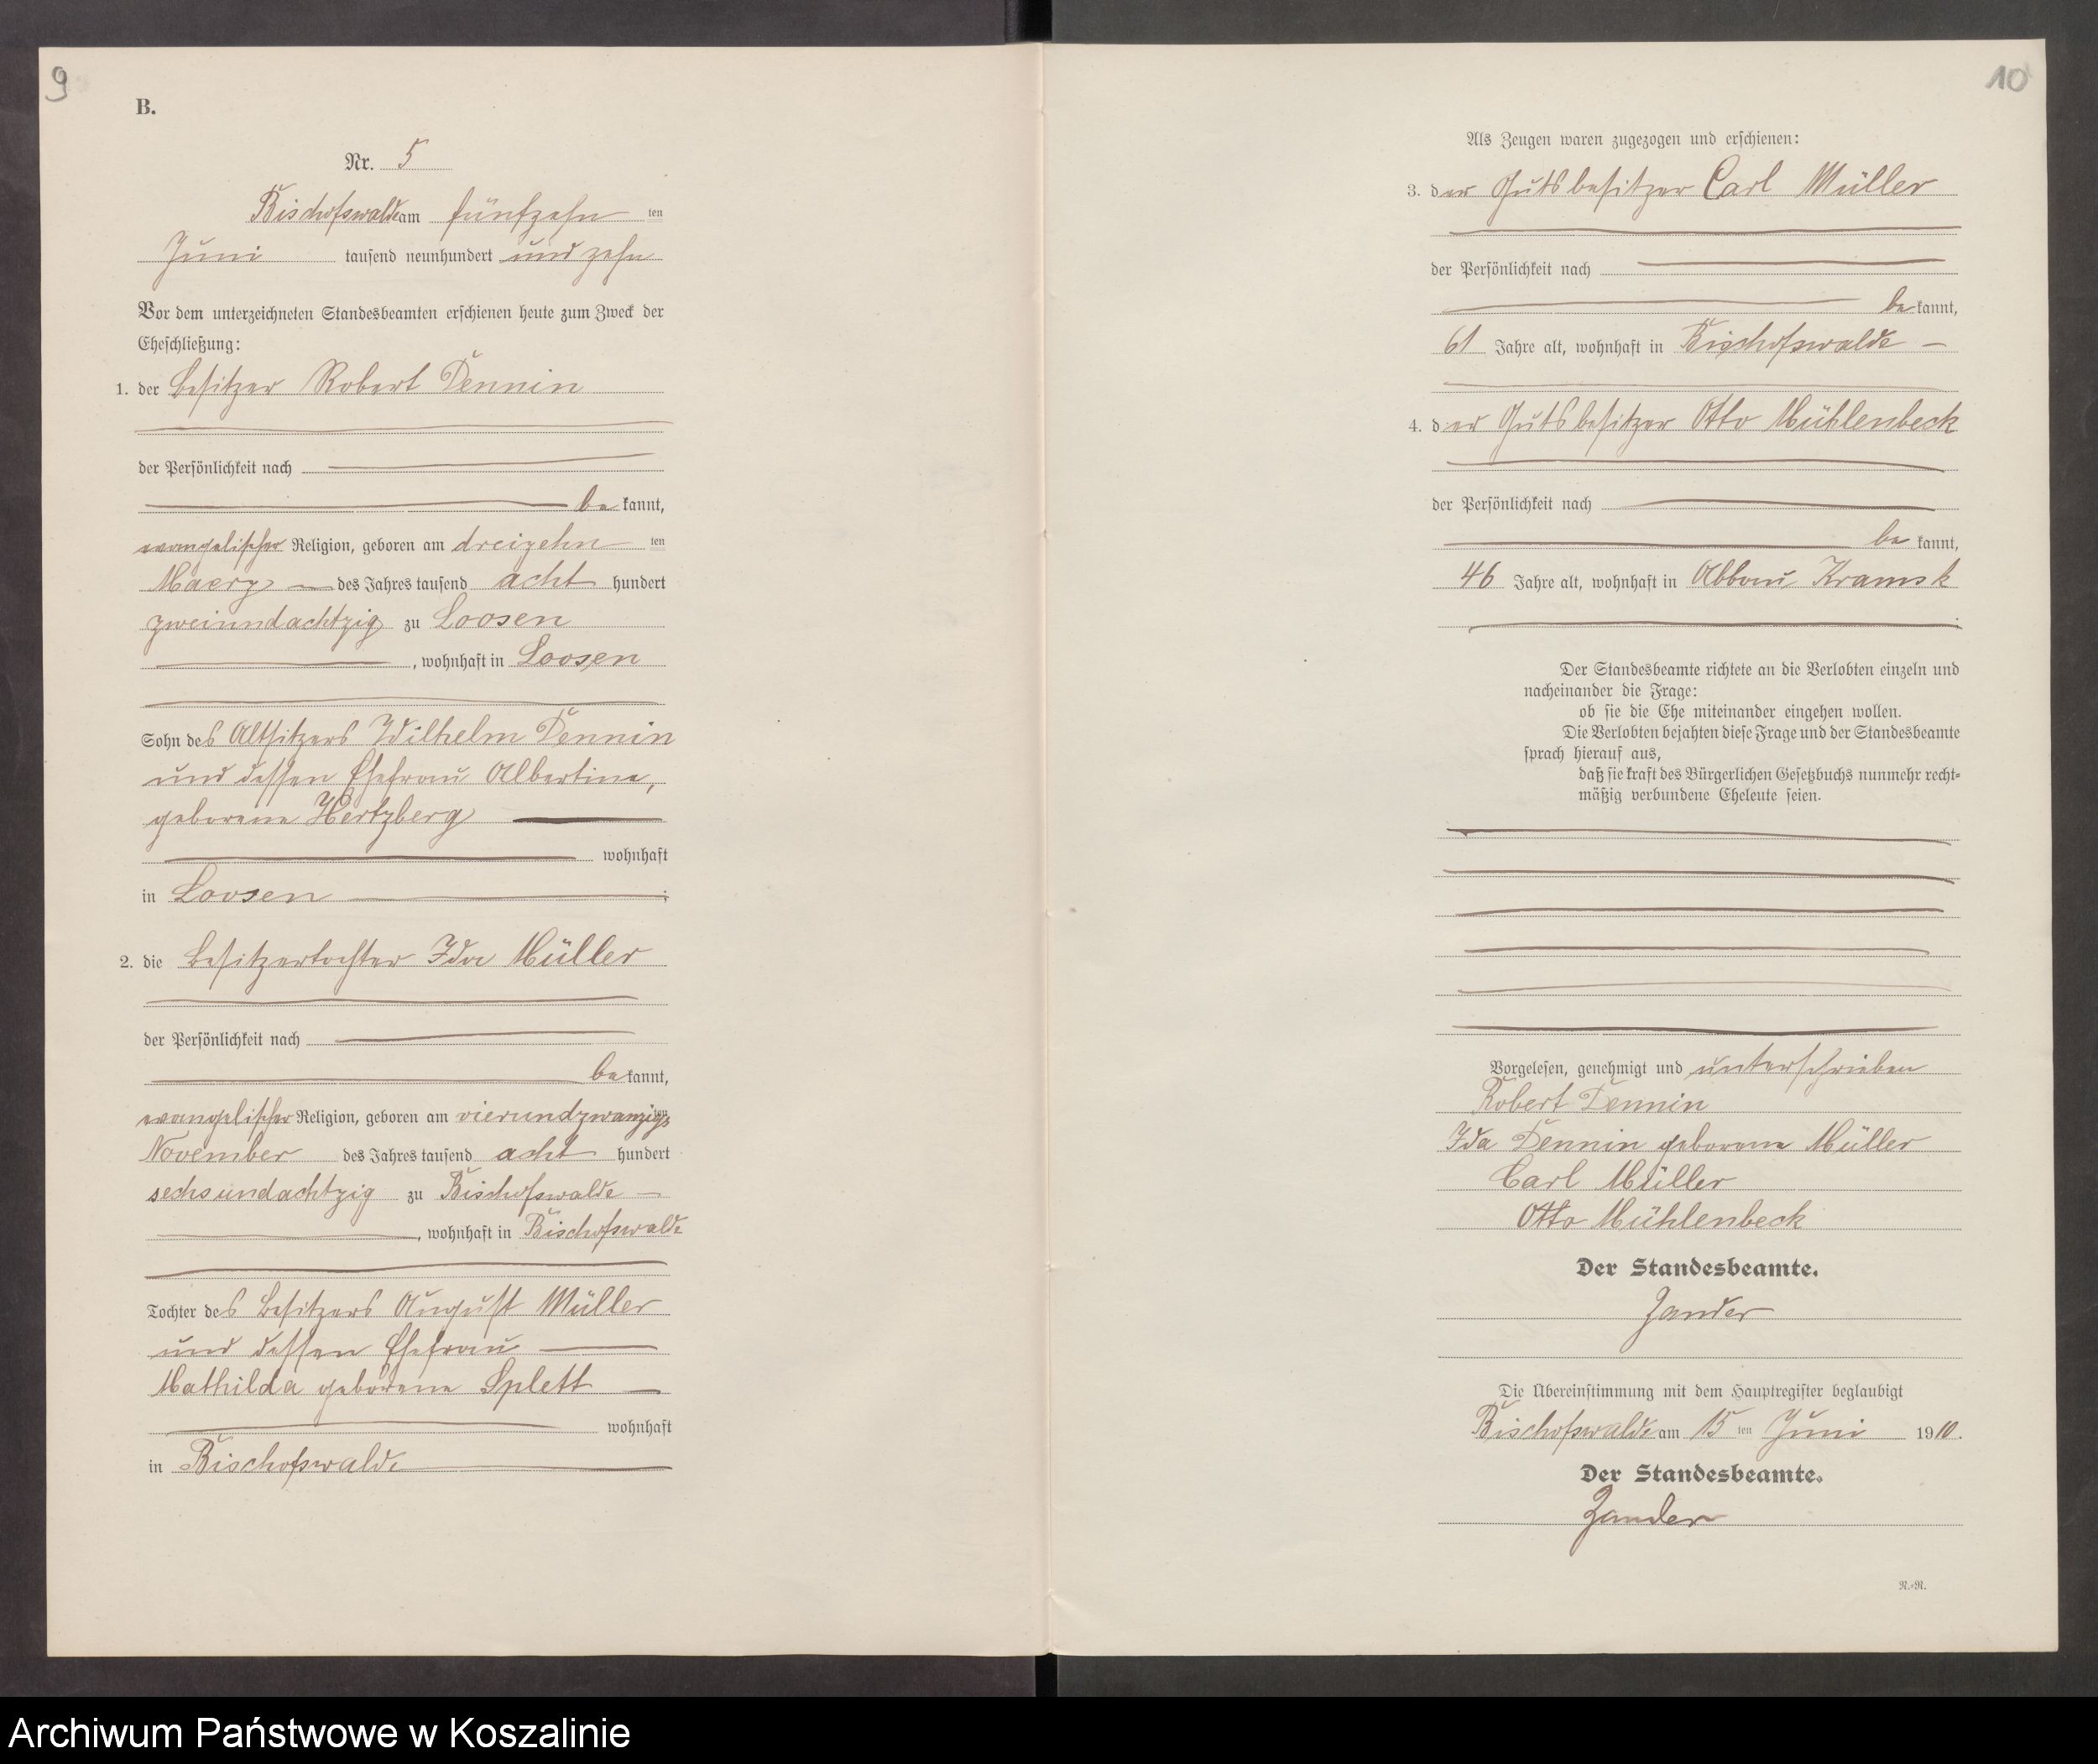 9
B.
Nr. 5
Bischofswalde am fünfzehn ten
Juni tausend neunhundert und zehn
Vor dem unterzeichneten Standesbeamten erschienen heute zum Zweck der
Eheschließung:
1. der Besitzer Robert Dennin
der Persönlichkeit nach
be kannt,
evangelischer Religion, geboren am dreizehn ten
Maerz des Jahres tausend acht hundert
zweiundachtzig zu Loosen
, wohnhaft in Loosen
Sohn des Altsitzers Wilhelm Dennin
und dessen Ehefrau Albertine,
geborene Hertzberg
wohnhaft
in Loosen ;
2. die Besitzertochter Ida Müller
der Persönlichkeit nach
be kannt,
evangelischer Religion, geboren am vierundzwanzigs ten
November des Jahres tausend acht hundert
sechsundachtzig zu Bischofswalde
, wohnhaft in Bischofswalde
Tochter des Besitzers August Müller
und dessen Ehefrau
Mathilda geborene Splett
wohnhaft
in Bischofswalde
10
Als Zeugen waren zugezogen und erschienen:
3. der Gutsbesitzer Carl Müller
der Persönlichkeit nach
be kannt,
61 Jahre alt, wohnhaft in Bischofswalde
4. der Gutsbesitzer Otto Mühlenbeck
der Persönlichkeit nach
be kannt,
46 Jahre alt, wohnhaft in Abbau Kramsk
Der Standesbeamte richtete an die Verlobten einzeln und
nacheinander die Frage:
ob sie die Ehe miteinander eingehen wollen.
Die Verlobten bejahten diese Frage und der Standesbeamte
sprach hierauf aus,
daß sie kraft des Bürgerlichen Gesetzbuchs nunmehr recht-
mäßig verbundene Eheleute seien.
Vorgelesen, genehmigt und unterschrieben
Robert Dennin
Ida Dennin geborene Müller
Carl Müller
Otto Mühlenbeck
Der Standesbeamte.
Zander
Die Übereinstimmung mit dem Hauptregister beglaubigt
Bischofswalde am 15 ten Juni 1910.
Der Standesbeamte.
Zander
R.-R.
Archiwum Państwowe w Koszalinie